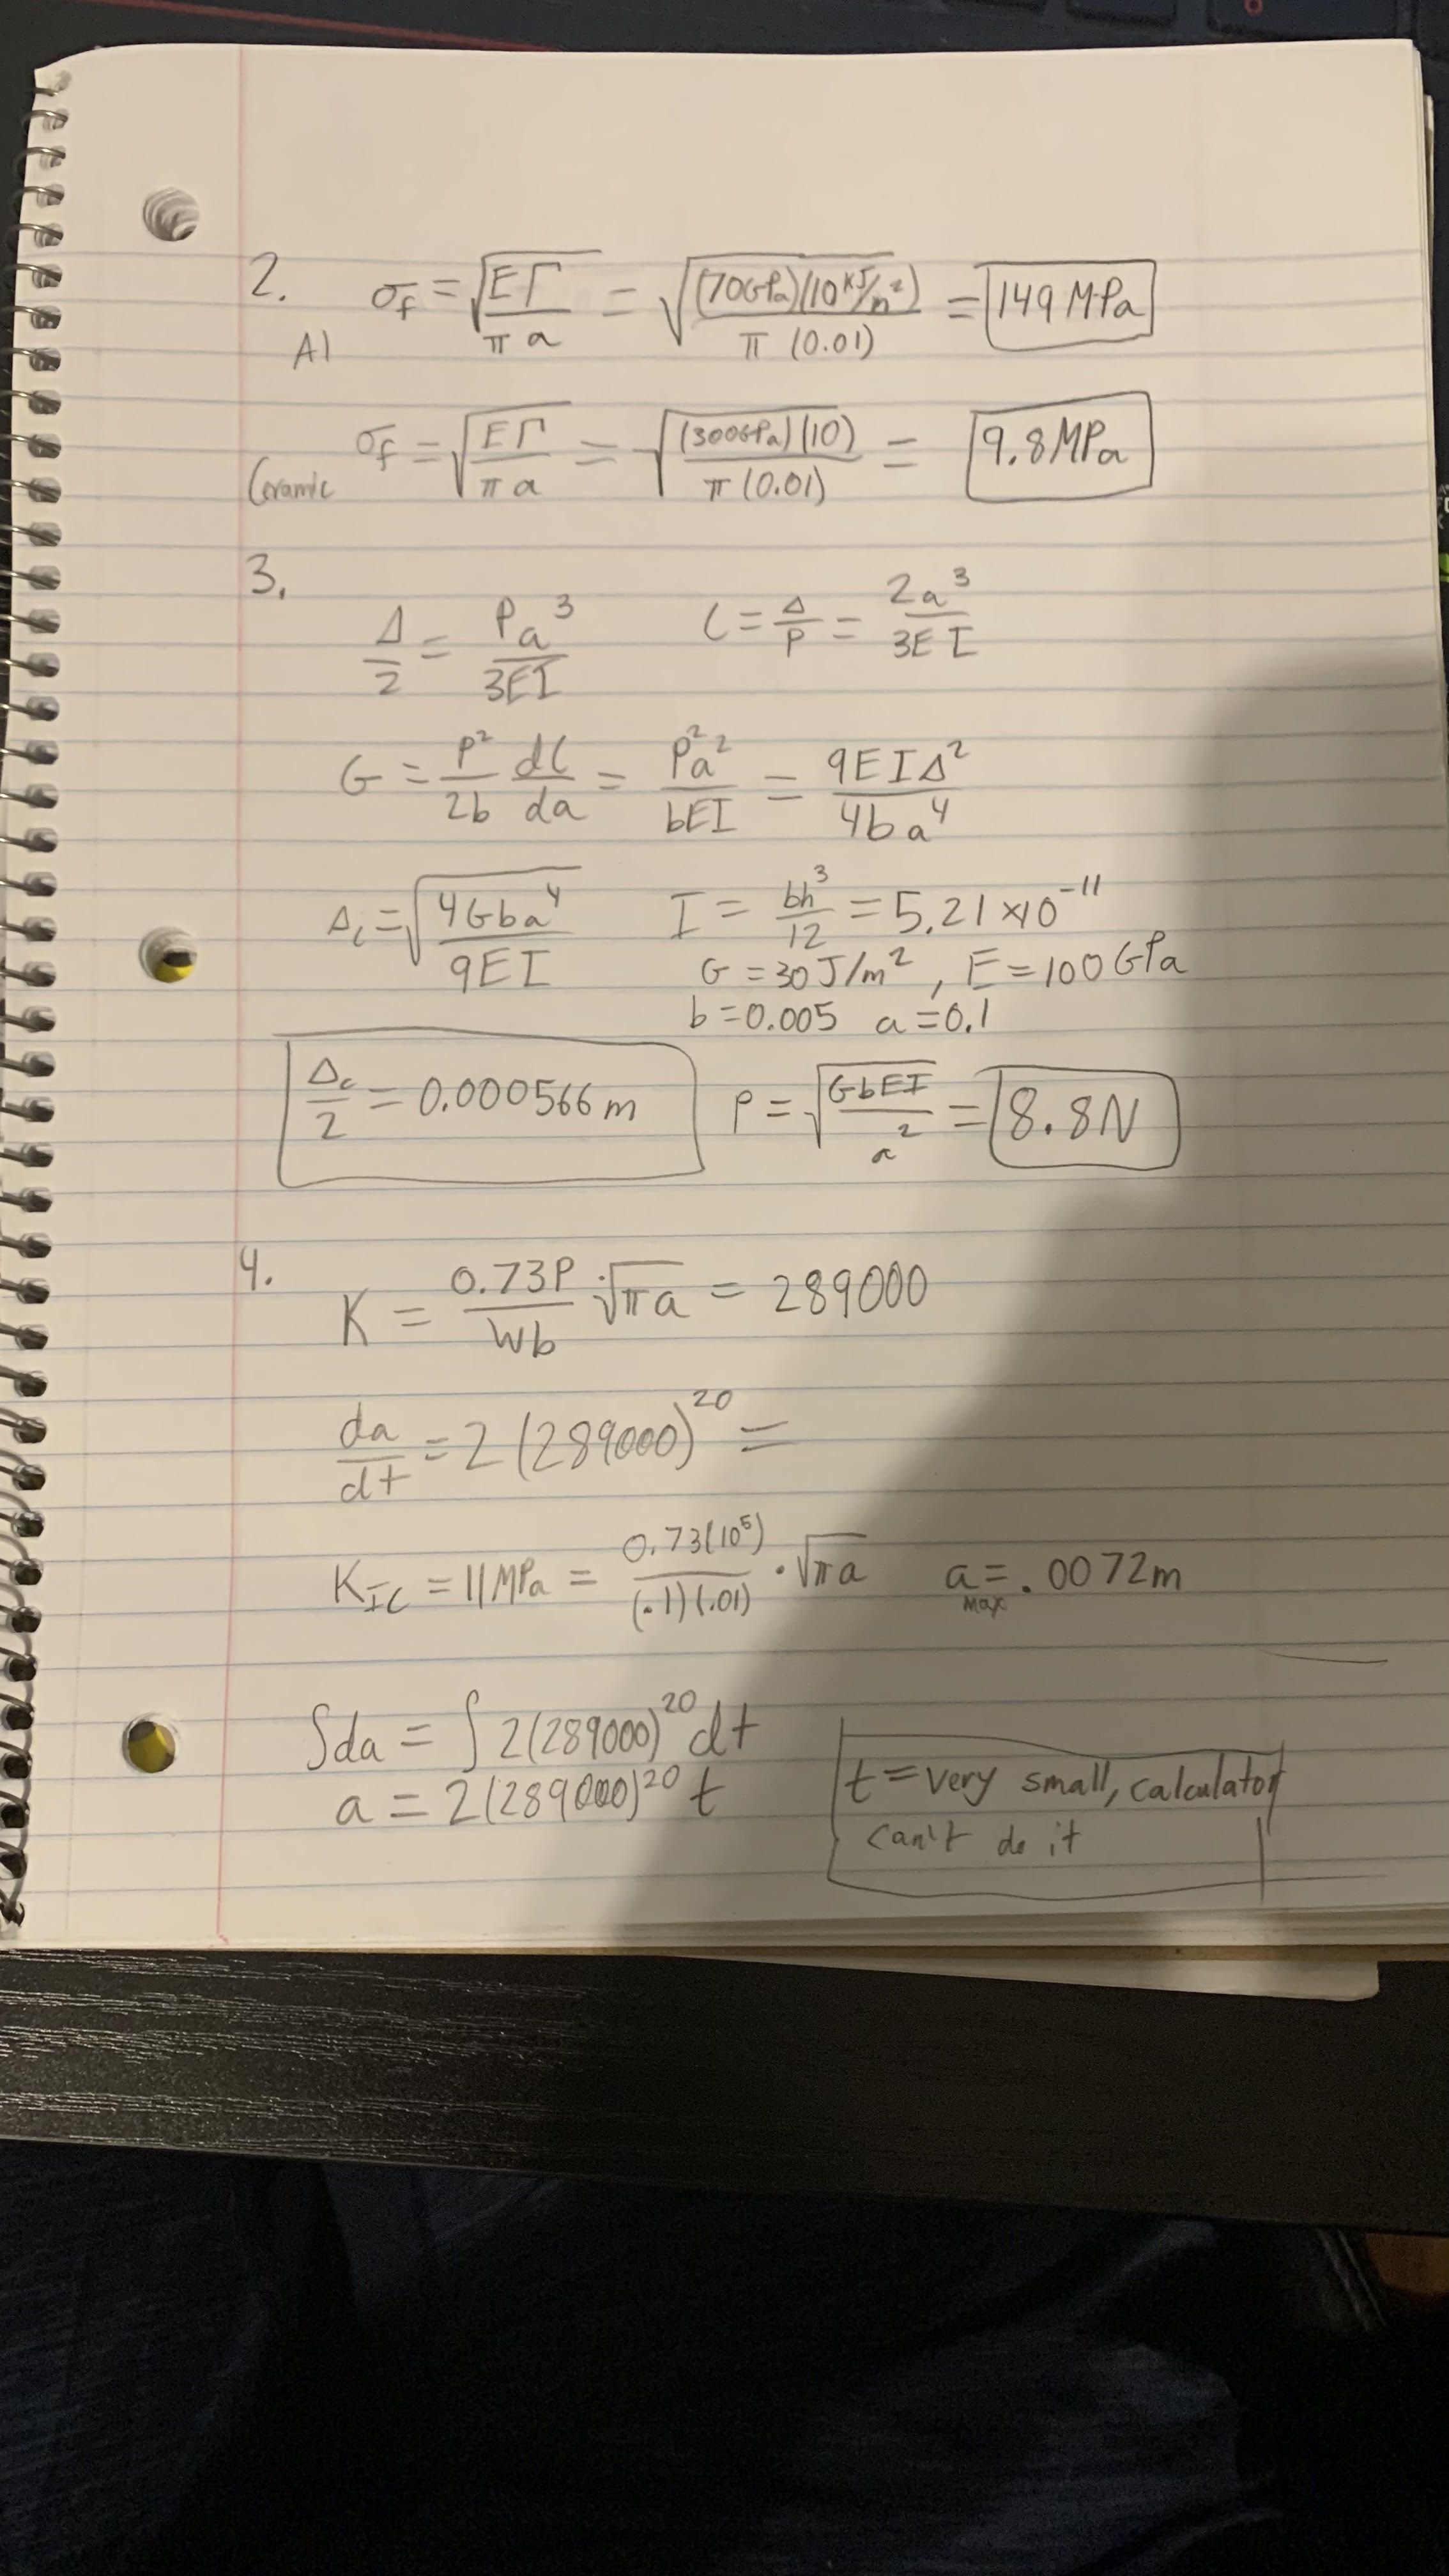 2. σf = √(EΓ / πa) = √((70GPa)(10 kJ/m²) / π(0.01)) = 149 MPa
Al
σf = √(EΓ / πa) = √((300GPa)(10) / π(0.01)) = 9.8 MPa
Ceramic
3.
Δ/2 = Pa³/3EI C = Δ/P = 2a³/3EI
G = P²/2b dC/da = P²a²/bEI = 9EIΔ²/4ba⁴
Δc = √(4Gba⁴ / 9EI) I = bh³/12 = 5.21 x10⁻¹¹
G = 30 J/m², E = 100 GPa
b = 0.005 a = 0.1
Δc/2 = 0.000566 m P = √(GbEI / a²) = 8.8N
4.
K = 0.73P/Wb · √πa = 289000
da/dt = 2(289000)²⁰ =
KIC = 11 MPa = 0.73(10⁵)/(.1)(.01) · √πa a max = .0072m
∫da = ∫2(289000)²⁰dt
a = 2(289000)²⁰ t
t = very small, calculator
can't do it